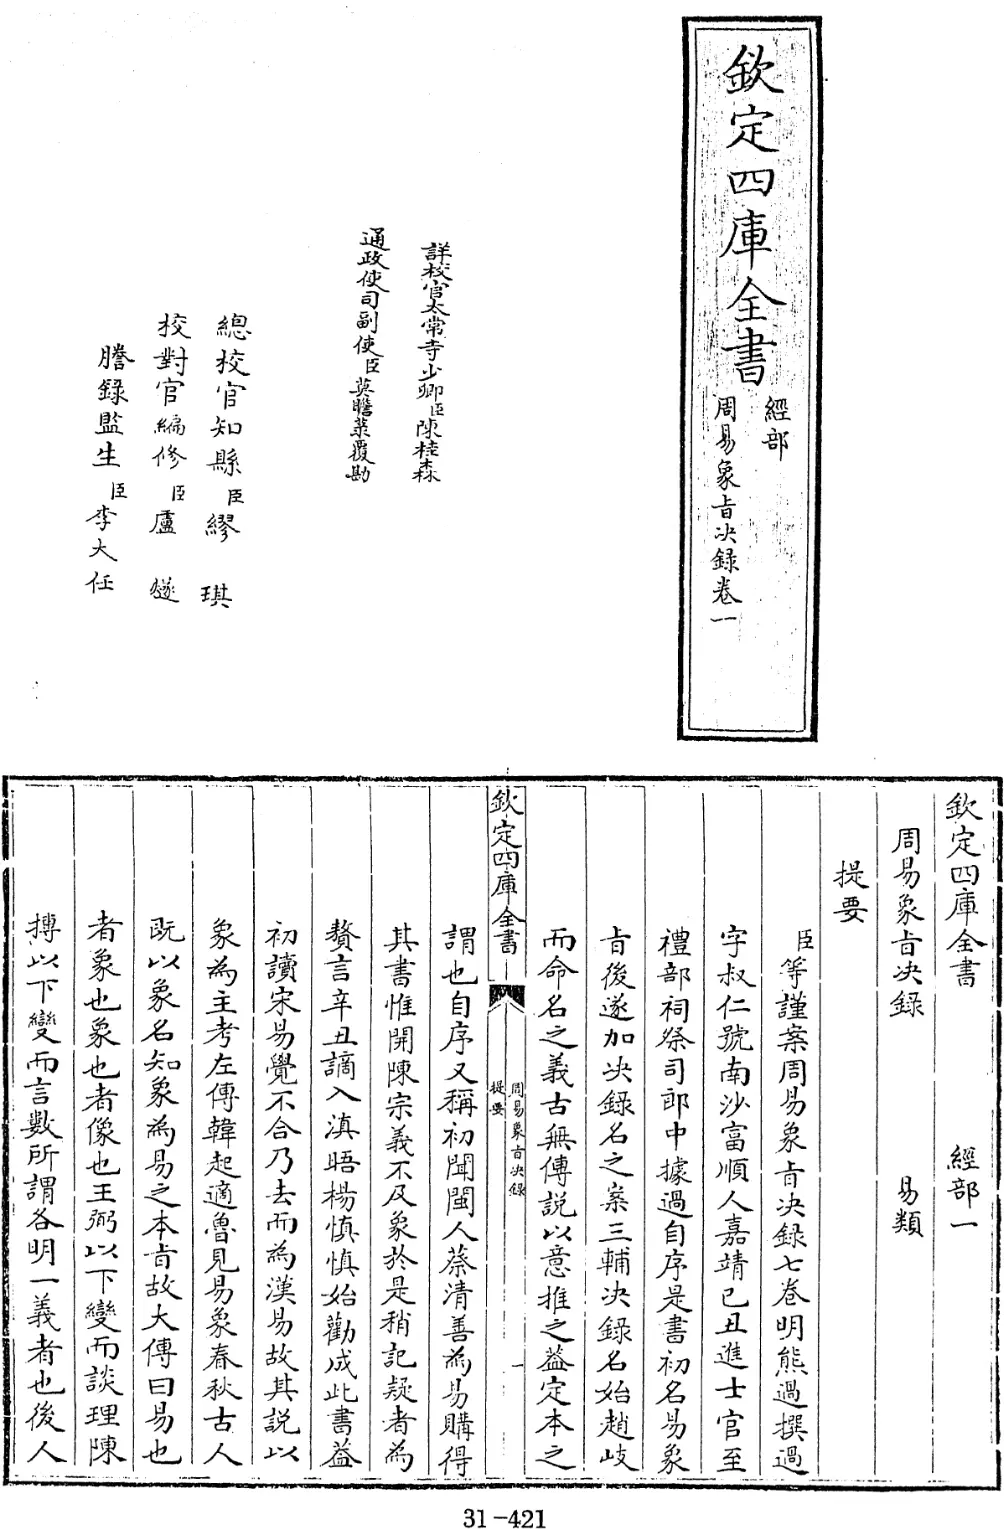 欽定四庫全書
經部
周易象旨决錄卷一
詳校官太常寺少卿臣陳桂森
通政使司副使臣莫瞻菉覆勘
總校官知縣臣繆琪
校對官編修臣盧遂
謄錄監生臣李大任
欽定四庫全書 經部一
周易象旨决錄 易類
提要
臣等謹案周易象旨决錄七卷明熊過撰過
字叔仁號南沙富順人嘉靖己丑進士官至
禮部祠祭司郎中據過自序是書初名易象
旨後遂加决錄名之案三輔决錄名始趙岐
而命名之義古無傳説以意推之葢定本之
欽定四庫全書
周易象旨决錄
提要
一
謂也自序又稱初聞閩人蔡清善為易購得
其書惟開陳宗義不及象於是稍記疑者為
贅言辛丑謫入滇晤楊慎慎始勸成此書葢
初讀宋易覺不合乃去而為漢易故其説以
象為主考左傳韓起適魯見易象春秋古人
既以象名知象為易之本旨故大傳曰易也
者象也象也者像也王弼以下變而談理陳
摶以下變而言數所謂各明一義者也後人
31-421